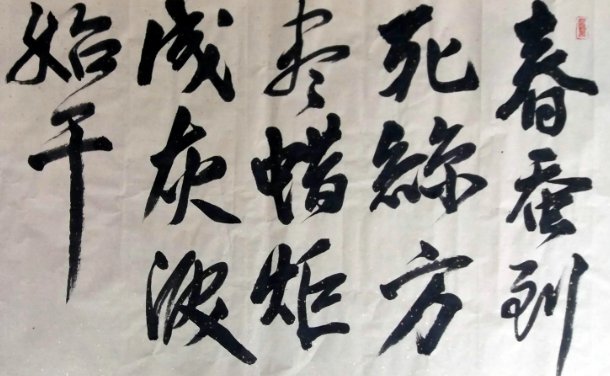 春蚕到
死絲方
尽蜡炬
成灰泪
始干